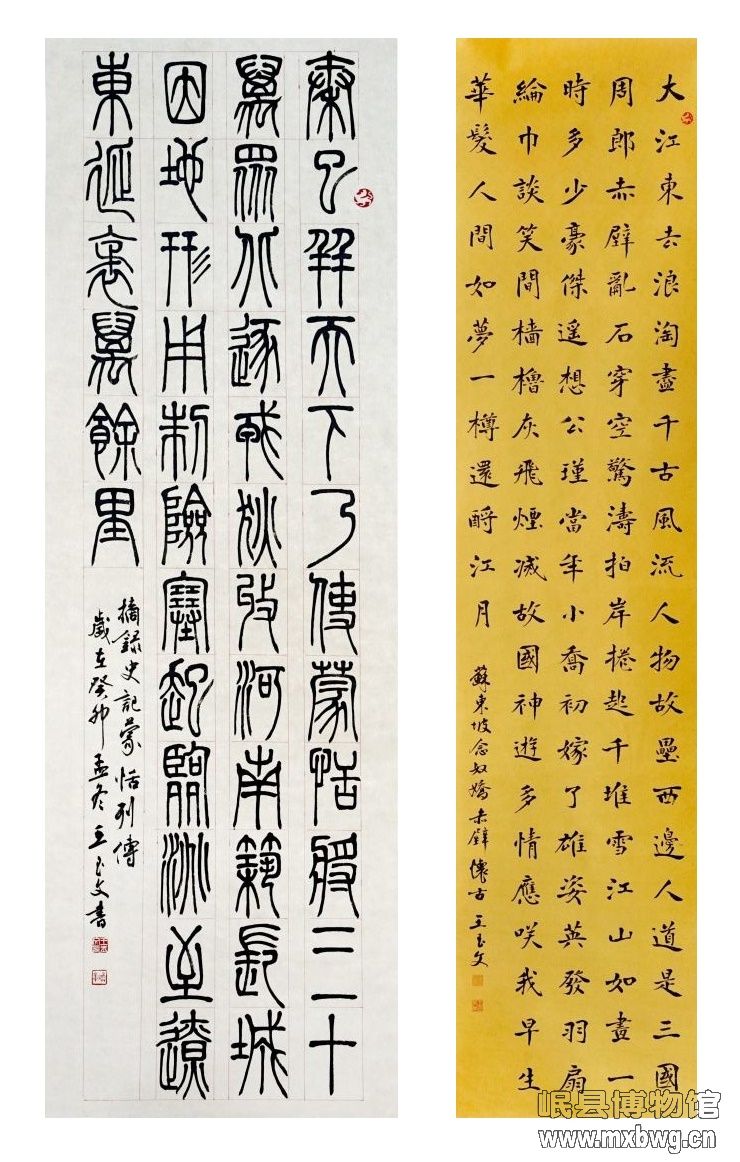 秦已并天下乃使蒙恬將三十
萬眾北逐戎狄收河南築長城
因地形用制險塞起臨洮至遼
東延袤萬餘里
摘錄史記蒙恬列傳
歲在癸卯孟冬王玉文書
大江東去浪淘盡千古風流人物故壘西邊人道是三國
周郎赤壁亂石穿空驚濤拍岸捲起千堆雪江山如畫一
時多少豪傑遥想公瑾當年小喬初嫁了雄姿英發羽扇
綸巾談笑間檣櫓灰飛煙滅故國神遊多情應咲我早生
華髮人間如夢一樽還酹江月
蘇東坡念奴嬌赤壁懷古 王玉文
岷县博物馆
www.mxbwg.cn